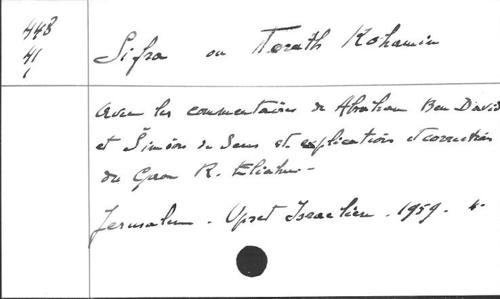 448
41
1
Sifra ou Torath Kohanim
avec les commentaires de Abraham Ben David
et Siméon de Sens et explications et corrections
du Gaon R. Eliahu -
Jerusalem - Upset Israelien - 1959 - 4.